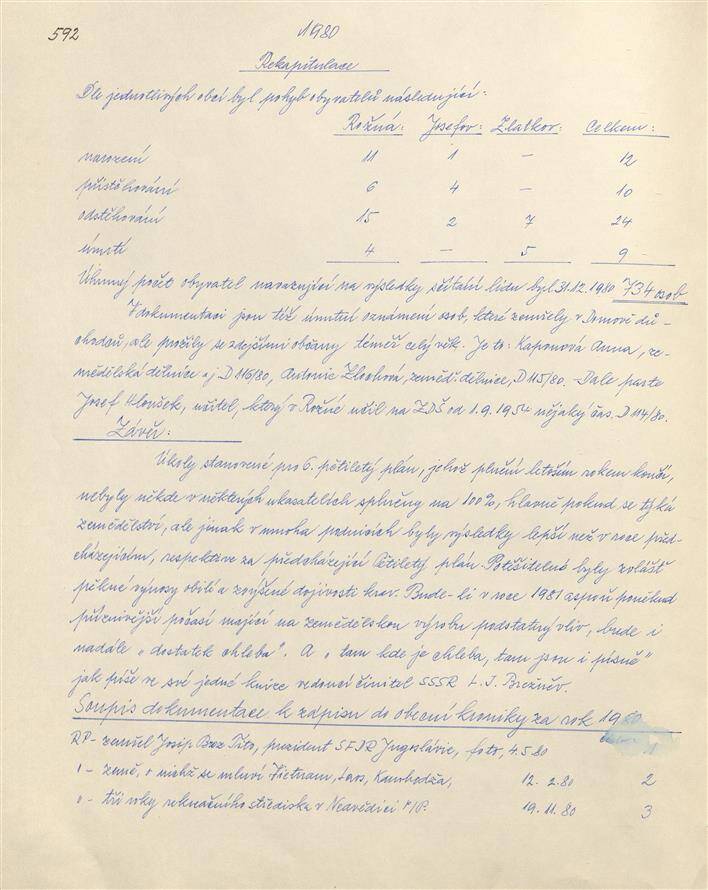 592
1980
Rekapitulace
Dle jednotlivých obcí byl pohyb obyvatelů následující:
Rožná: Josefov: Zlatkov: Celkem:
narození 11 1 — 12
přistěhování 6 4 — 10
odstěhování 15 2 7 24
úmrtí 4 — 5 9
Úhrnný počet obyvatel navazující na výsledky sčítání lidu byl 31.12.1980 734 osob
V dokumentaci jsou též úmrtní oznámení osob, které zemřely v Domově dů-
chodců, ale prožily se zdejšími občany téměř celý věk. Je to: Kaponová Anna, ze-
mědělská dělnice D 116/80, Antonie zeměď. dělnice, D 115/80. Dále
Josef Hloušek, učitel, který v Rožné učil na ZDŠ od 1.9.1954 nějaký čas. D 114/80.
Závěr:
Úkoly stanovené pro 6. pětiletý plán, jehož plnění letošním rokem končí,
nebyly někde v některých ukazatelích splněny na 100%, hlavně pokud se týká
zemědělství, ale jinak v mnoha podnicích byly výsledky lepší než v roce před-
cházejícím, respektive za předcházející 5tiletý plán. Potěšitelné byly zvláště
pěkné výnosy obilí a zvýšené dojivosti krav. Bude-li v roce 1981 aspoň poněkud
příznivější počasí mající na zemědělskou výrobu podstatný vliv, bude i
nadále „dostatek chleba". A „tam kde je chleba, tam jsou i písně"
jak píše ve své jedné knize vedoucí činitel SSSR L. I. Brežněv.
Soupis dokumentace k zápisu do obecní kroniky za rok 1980
RP - zemřel Josip Broz Tito, prezident SFRJ Jugoslávie, foto, 4.5.80 1
" - země, o nichž se mluví Vietnam, Laos, Kambodža, 12. 2. 80 2
" - tři roky rekreačního střediska v Nedvědici 19. 11. 80 3